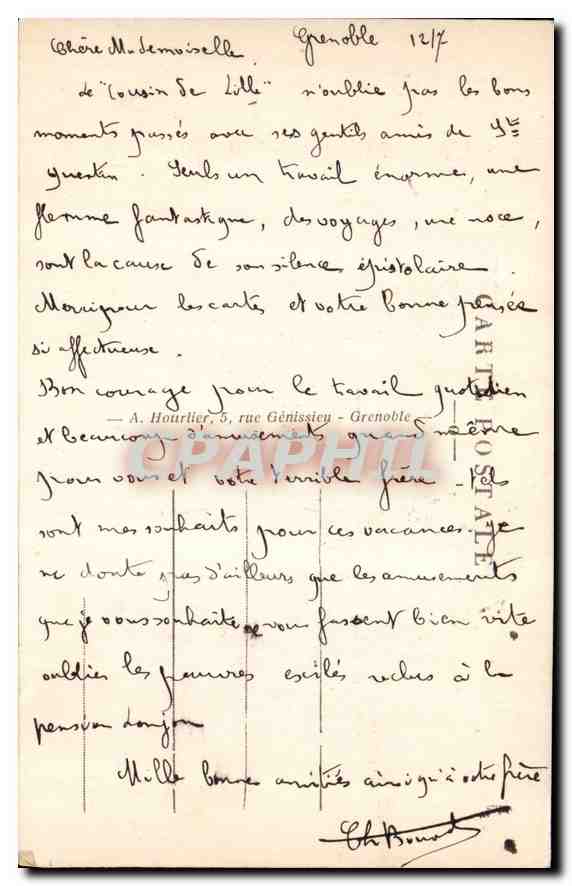 Grenoble 12/7
Chère Mademoiselle
Le "Cousin de Lille" n'oublie pas les bons
moments passés avec ses gentils amis de St
Quentin. Seuls un travail énorme, une
flemme fantastique, des voyages, une noce,
sont la cause de son silence épistolaire.
Merci pour les cartes et votre bonne pensée
si affectueuse.
Bon courage pour le travail quotidien
— A. Hourlier, 5, rue Génissieu - Grenoble —
et beaucoup d'amusements quand même
CPAPHIL
pour vous et votre terrible frère - tels
sont mes souhaits pour ces vacances. Je
ne doute pas d'ailleurs que les amusements
que je vous souhaite vous fassent bien vite
oublier les pauvres exilés reclus à la
pension
Mille bonnes amitiés ainsi qu'à votre frère
CARTE POSTALE